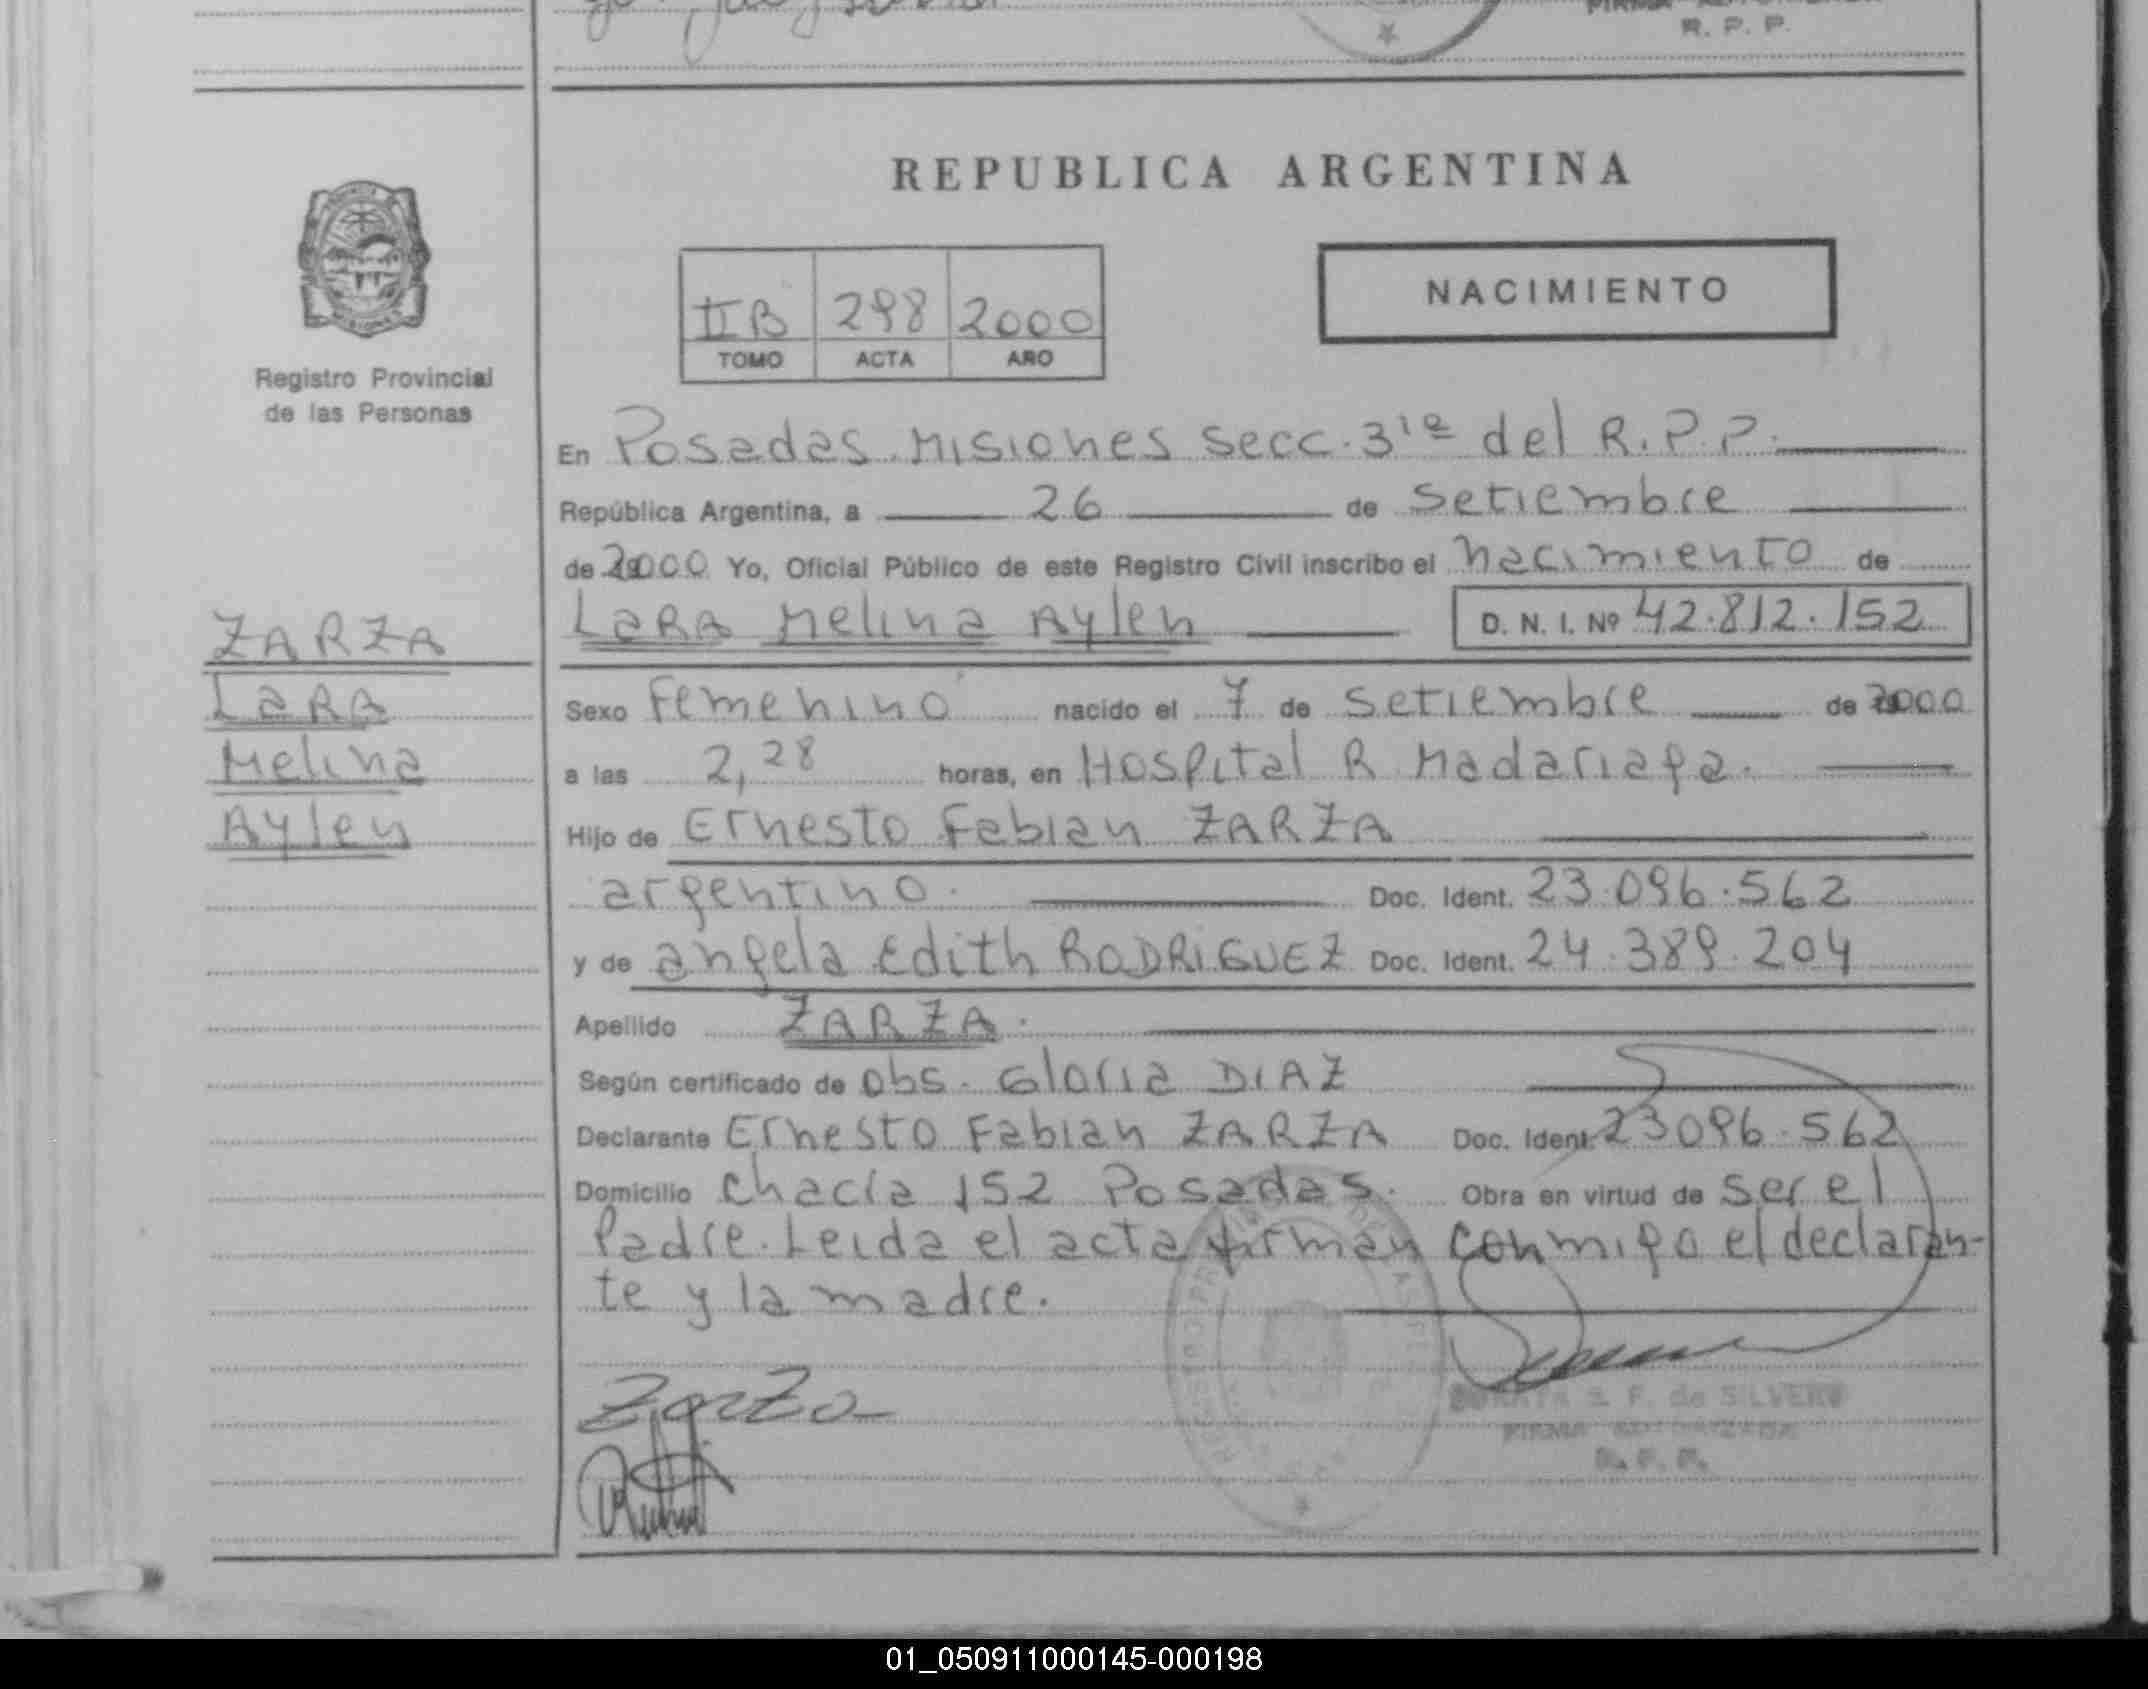 R. P. P.
REPUBLICA ARGENTINA
NACIMIENTO
IIB 298 2000
TOMO ACTA AÑO
Registro Provincial
de las Personas
En Posadas Misiones Secc. 3ra del R.P.P.
República Argentina, a 26 de Setiembre
de 2000 Yo, Oficial Público de este Registro Civil inscribo el nacimiento de
Lara Melina Aylen D. N. I. Nº 42.812.152
ZARZA
Lara
Melina
Aylen
Sexo Femenino nacido el 7 de Setiembre de 2000
a las 2,28 horas, en Hospital R. Madariaga.
Hijo de Ernesto Fabian ZARZA
argentino. Doc. Ident. 23.096.562
y de angela Edith RODRIGUEZ Doc. Ident. 24.389.204
Apellido ZARZA.
Según certificado de Obs. Gloria DIAZ
Declarante Ernesto Fabian ZARZA Doc. Ident. 23096.562
Domicilio Chacra 152 Posadas. Obra en virtud de ser el
Padre. Leida el acta firman conmigo el declaran-
te y la madre.
Zarza
F. de SILVERO
FIRMA AUTORIZADA
R. P. P.
01_050911000145-000198